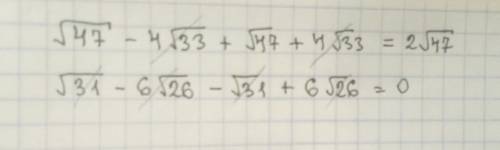 √47 - 4√33 + √47 + 4√33 = 2√47
√31 - 6√26 - √31 + 6√26 = 0